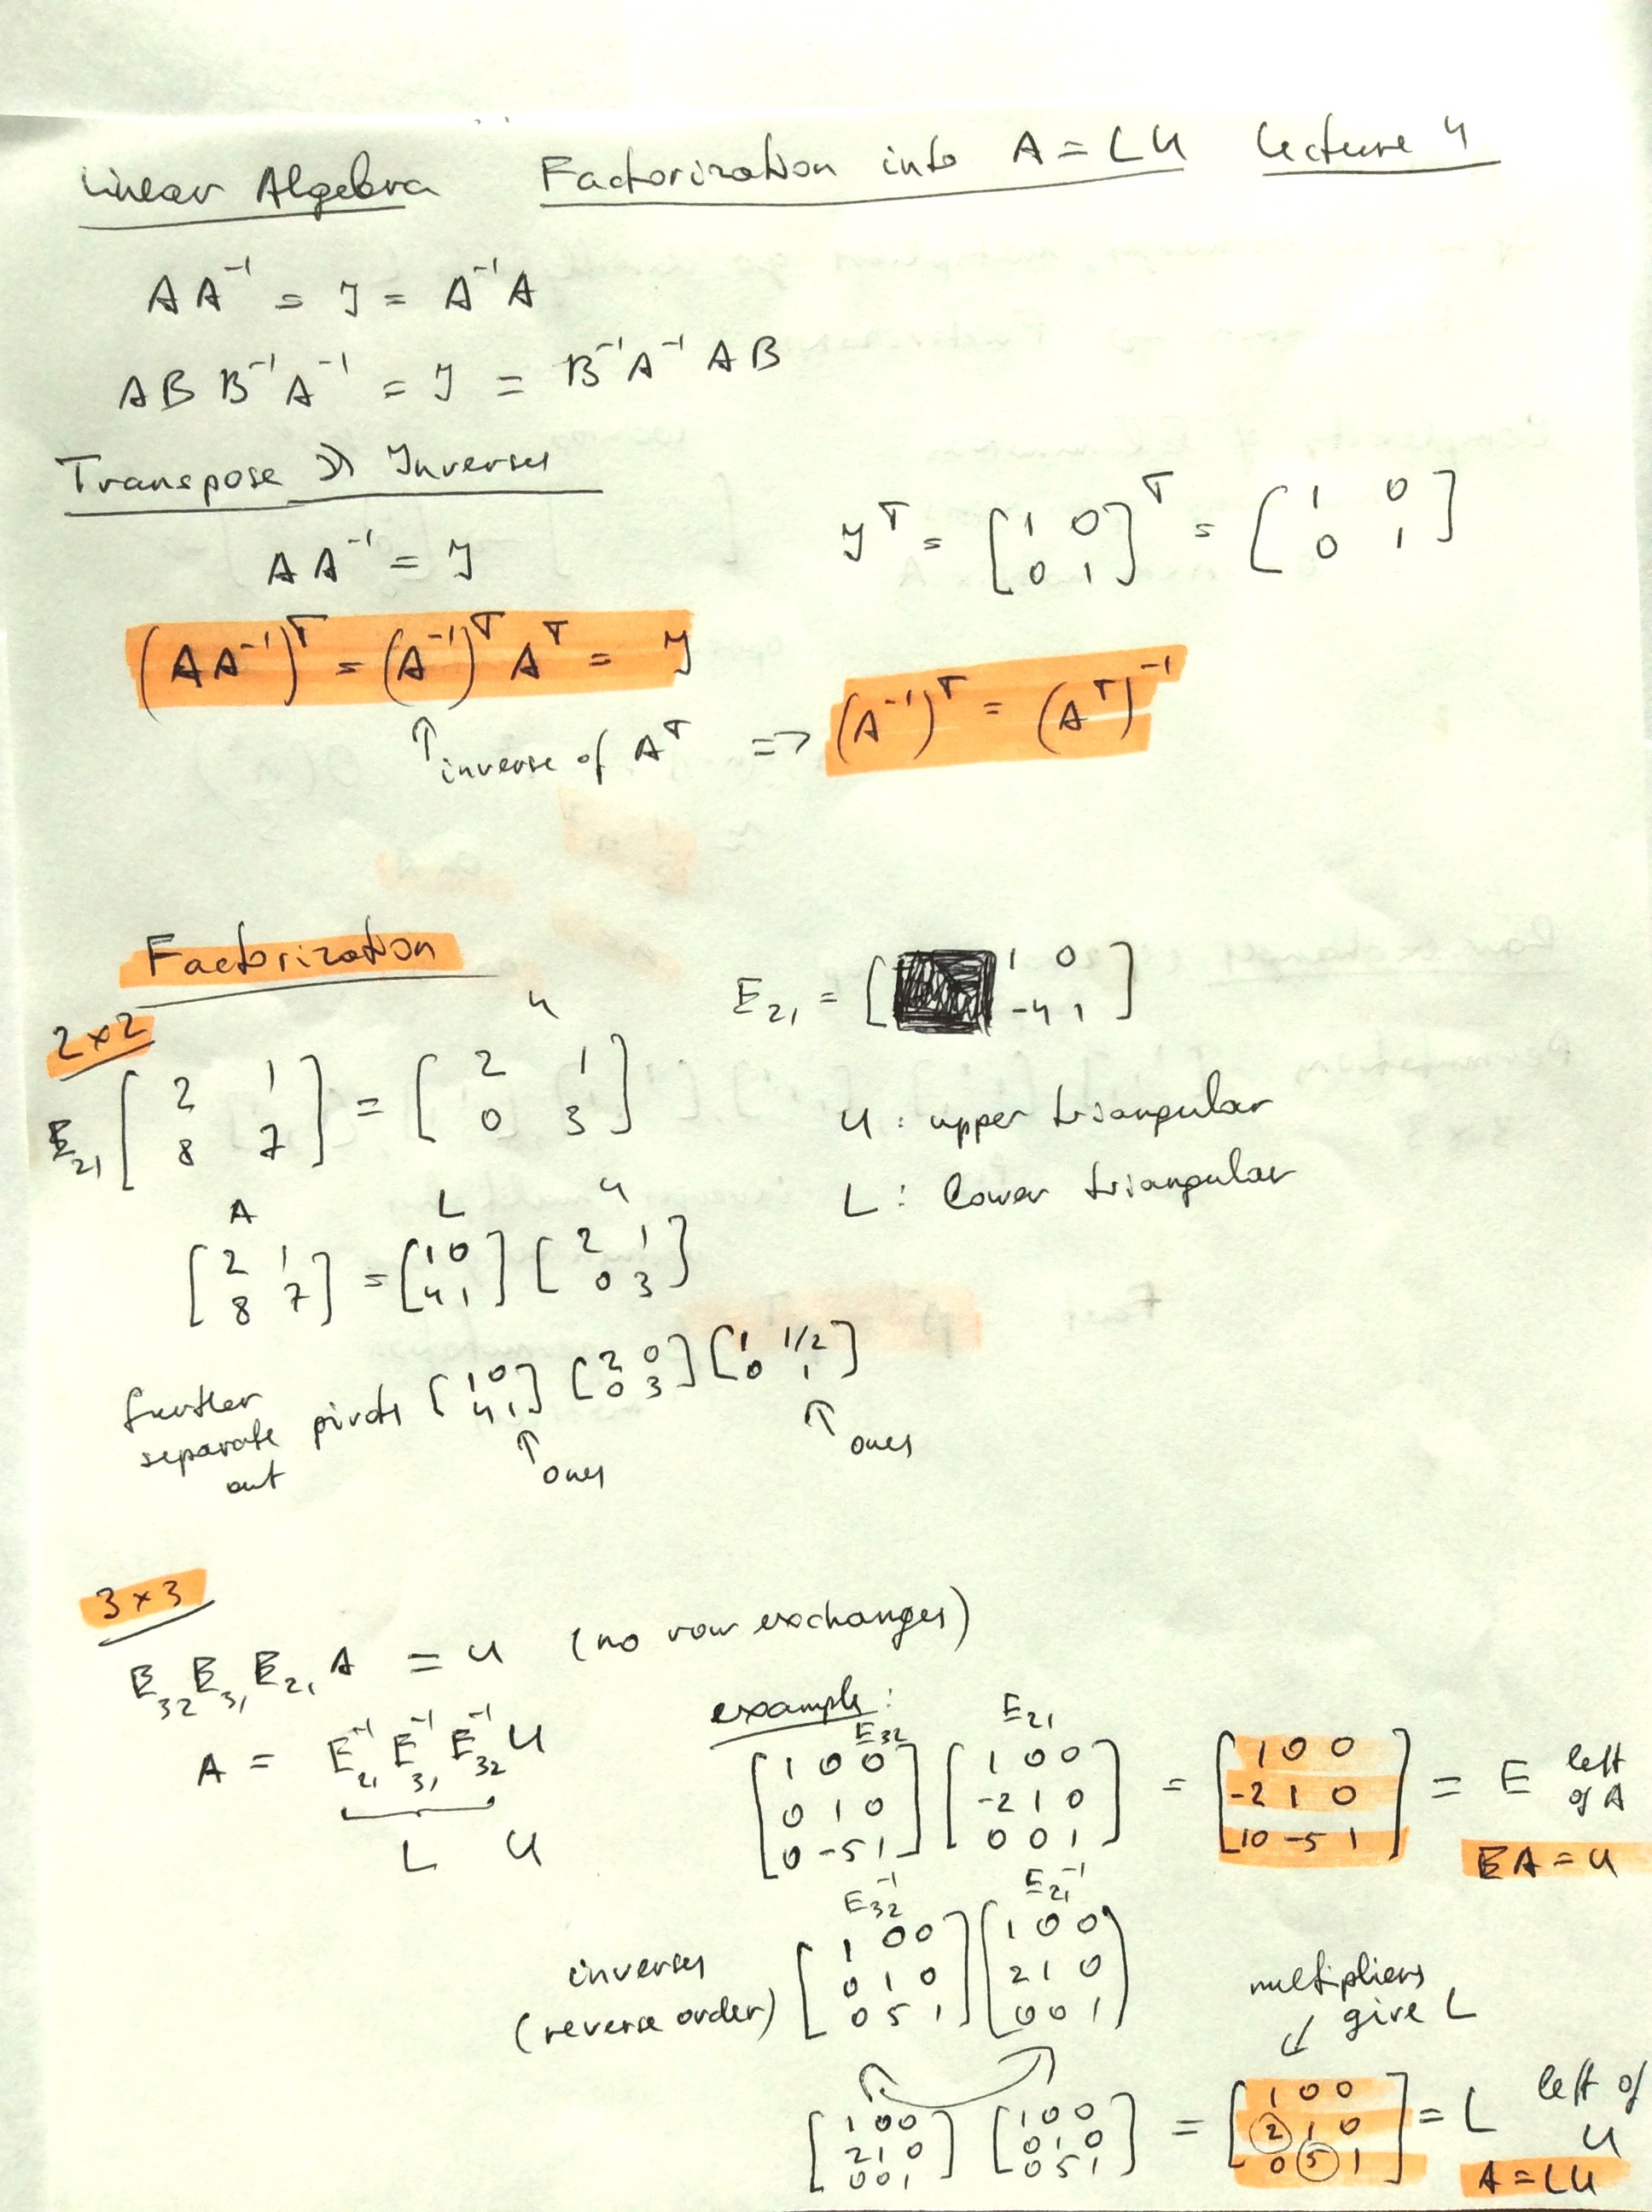 Linear Algebra Factorization into A = LU Lecture 4
A A⁻¹ = I = A⁻¹ A
A B B⁻¹ A⁻¹ = I = B⁻¹ A⁻¹ A B
Transpose & Inverses
A A⁻¹ = I
Iᵀ = [1 0; 0 1]ᵀ = [1 0; 0 1]
(A A⁻¹)ᵀ = (A⁻¹)ᵀ Aᵀ = I
↑ inverse of Aᵀ => (A⁻¹)ᵀ = (Aᵀ)⁻¹
Factorization
E₂₁ = [1 0; -4 1]
2×2
U
E₂₁ [2 1; 8 7] = [2 1; 0 3]
U: upper triangular
L: lower triangular
A L U
[2 1; 8 7] = [1 0; 4 1] [2 1; 0 3]
further separate out pivots [1 0; 4 1] [2 0; 0 3] [1 1/2; 0 1]
↑ ones ↑ ones
3×3
E₃₂ E₃₁ E₂₁ A = U (no row exchanges)
A = E₂₁⁻¹ E₃₁⁻¹ E₃₂⁻¹ U
L U
example:
E₃₂ E₂₁
[1 0 0; 0 1 0; 0 -5 1] [1 0 0; -2 1 0; 0 0 1] = [1 0 0; -2 1 0; 10 -5 1] = E left of A
EA = U
E₃₂⁻¹ E₂₁⁻¹
inverses (reverse order) [1 0 0; 0 1 0; 0 5 1] [1 0 0; 2 1 0; 0 0 1]
multipliers give L
↓
[1 0 0; 2 1 0; 0 0 1] [1 0 0; 0 1 0; 0 5 1] = [1 0 0; 2 1 0; 0 5 1] = L left of U
A = LU